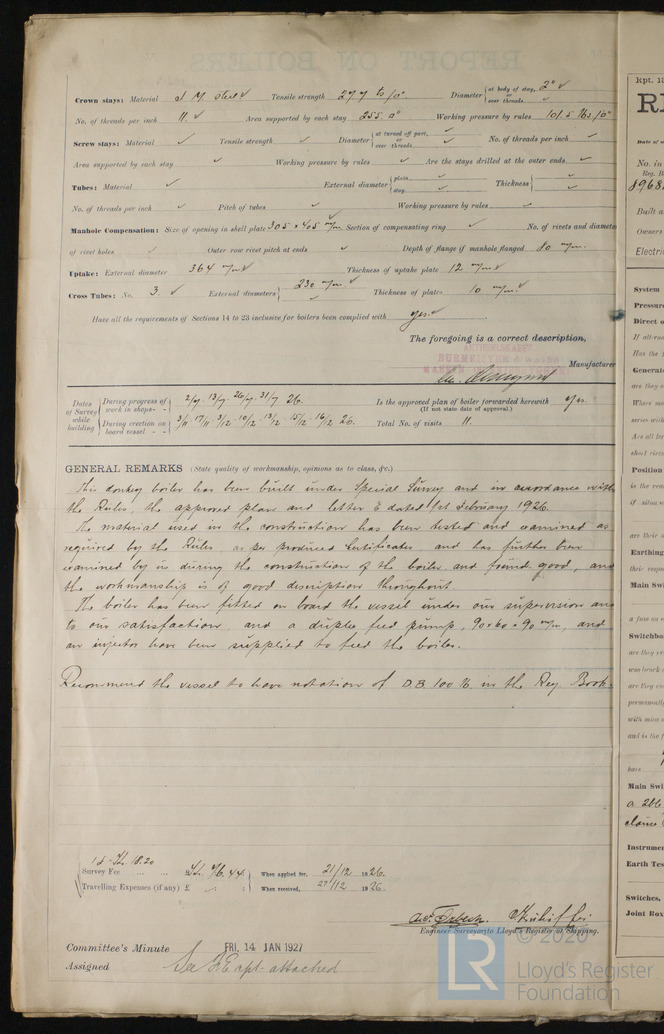 Crown stays: Material S. M. Steel ✓ Tensile strength 27 to /□" Diameter { at body of stay, 2" ✓ or over threads. ✓
No. of threads per inch 11 ✓ Area supported by each stay 255 □" Working pressure by rules 101.5 lbs /□"
Screw stays: Material ✓ Tensile strength ✓ Diameter { at turned off part, ✓ or over threads. ✓ No. of threads per inch ✓
Area supported by each stay ✓ Working pressure by rules ✓ Are the stays drilled at the outer ends ✓
Tubes: Material ✓ External diameter { plain ✓ stay ✓ Thickness { ✓ ✓
No. of threads per inch ✓ Pitch of tubes ✓ Working pressure by rules ✓
Manhole Compensation: Size of opening in shell plate 305 × 405 m/m Section of compensating ring ✓ No. of rivets and diameter
of rivet holes ✓ Outer row rivet pitch at ends ✓ Depth of flange if manhole flanged 80 m/m.
Uptake: External diameter 364 m/m ✓ Thickness of uptake plate 12 m/m ✓
Cross Tubes: No. 3. ✓ External diameters { 230 m/m. ✓ Thickness of plates 10 m/m. ✓
Have all the requirements of Sections 14 to 23 inclusive for boilers been complied with yes ✓
The foregoing is a correct description,
AKTIESELSKABET
BURMEISTER & WAIN'S
Manufacturer
Dates of Survey while building { During progress of work in shops - - 2/7. 13/7. 26/7. 31/7 26. Is the approved plan of boiler forwarded herewith yes
(If not state date of approval.)
During erection on board vessel - - 3/11 17/11 3/12 10/12 13/12 15/12 16/12 26. Total No. of visits 11.
GENERAL REMARKS (State quality of workmanship, opinions as to class, &c.)
This donkey boiler has been built under Special Survey and in accordance with
the Rules, the approved plan and letter E dated 1st February 1926.
The material used in the construction has been tested and examined as
required by the Rules as per produced Certificates and has further been
examined by us during the construction of the boiler and found good, and
the workmanship is of good description throughout.
The boiler has been fitted on board the vessel under our supervision and
to our satisfaction, and a duplex feed pump, 90 × 60 × 90 m/m, and
an injector have been supplied to feed the boiler.
Recommend the vessel to have notation of D.B. 100 lb in the Reg. Book.
Survey Fee ... ... £ 76.44 When applied for, 21/12 1926.
Travelling Expenses (if any) £ : : When received, 27/12 1926
Engineer Surveyor to Lloyd's Register of Shipping.
Committee's Minute FRI. 14 JAN 1927
Assigned See F.E. rpt. attached
© 2020
LR
Lloyd's Register
Foundation
Rpt. 13
Date of
No. in
Reg. B
8968
Built a
Owners
Electric
System
Pressure
Direct o
If alter
Has the
Generat
are they
Where mo
series wit
Are all
short circ
Position
is the
if situa
are their
Earthing
their resp
Main Swi
a fuse on
Switchbo
are they
was
are they
permanently
with
and is the
bars
Main Swi
Instrumen
Earth Tes
Switches,
Joint Box